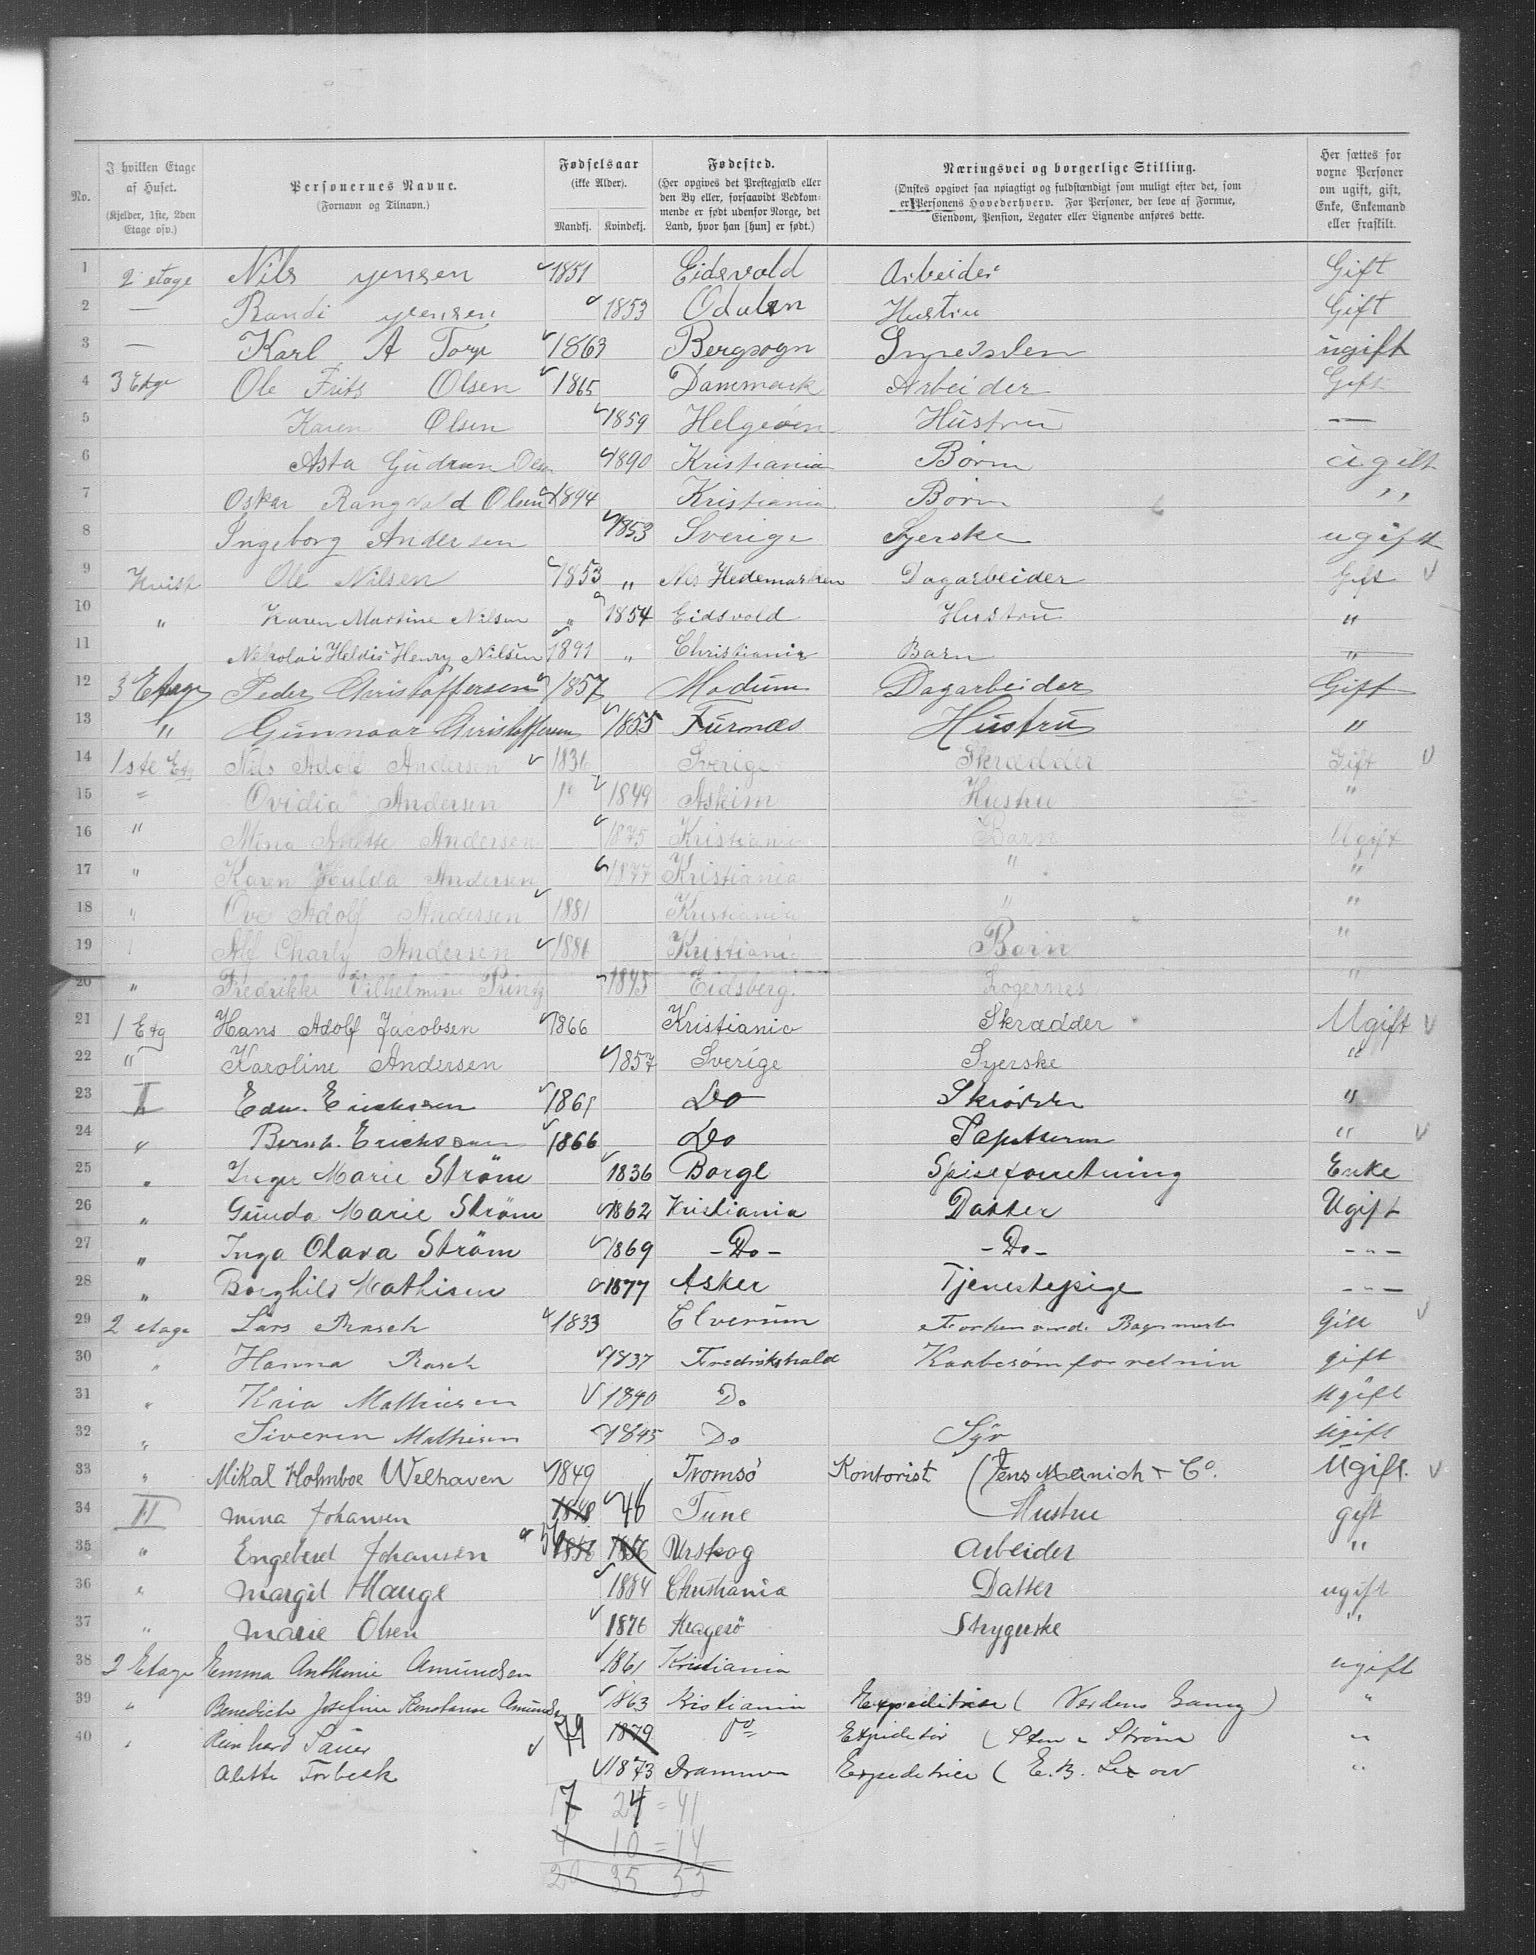 No.
I hvilken Etage af Huset. (Kjelder, 1ste, 2den Etage osv.)
Personernes Navne. (Fornavn og Tilnavn.)
Fødselsaar (ikke Alder). Mandkj. Kvindekj.
Fødested. (Her opgives det Prestegjæld eller den By eller, forsaavidt Vedkommende er født udenfor Norge, det Land, hvor han [hun] er født.)
Næringsvei og borgerlige Stilling. (Ønskes opgivet saa nøiagtigt og fuldstændigt som muligt efter det, som er Personens Hovederhverv. For Personer, der leve af Formue, Eiendom, Pension, Legater eller Lignende anføres dette.
Her sættes for voxne Personer om ugift, gift, Enke, Enkemand eller fraskilt.
1 2 etage Nils Jensen 1851 Eidsvold Arbeider Gift
2 — Randi Jensen 1853 Odalen Hustru Gift
3 — Karl A Torp 1863 Bergsogn ugift
4 3 Etge Ole Frits Olsen 1865 Danmark Arbeider Gift
5 Karen Olsen 1859 Helgeøen Hustru —
6 Asta Gudrun Olsen 1890 Kristiania Børn ugift
7 Oskar Rangvald Olsen 1894 Kristiania Børn ,,
8 Ingeborg Andersen 1853 Sverige Syerske ugift
9 Kvist Ole Nilsen 1853 „ Nes Hedemarken Dagarbeider Gift
10 „ Karen Martine Nilsen „ 1854 Eidsvold Hustru „
11 Nikolai Heldis Henry Nilsen 1891 „ Christiania Barn „
12 3 Etage Peder Christoffersen 1857 Modum Dagarbeider Gift
13 „ Gunnaar Christoffersen 1855 Furnæs Hustru „
14 1ste Etg Nils Adolf Andersen 1836 Sverige Skrædder Gift
15 „ Ovidia Andersen 1849 Askim Hustru „
16 „ Mina Andersen 1875 Kristiania Barn Ugift
17 „ Karen Hulda Andersen 1877 Kristiania „ „
18 „ Ove Adolf Andersen 1881 Kristiania „ „
19 Alf Charly Andersen 1886 Kristiania Barn „
20 „ Fredrikke Vilhelmine Printz 1845 Eidsberg. Logernes „
21 1 Etg Hans Adolf Jacobsen 1866 Kristiania Skrædder Ugift
22 „ Karoline Andersen 1857 Sverige Syerske „
23 II Edw. Erickssen 1861 Do „
24 „ Bernh. Erickssen 1866 Do „
25 „ Inger Marie Strøm 1836 Borge Spiseforretning Enke
26 „ Gunda Marie Strøm 1862 Kristiania Datter Ugift
27 „ Inga Olava Strøm 1869 — Do — — Do — — „ —
28 „ Borghild Mathisen 1877 Asker Tjenestepige — „ —
29 2 etage Lars Rasch 1833 Elverum Gift
30 „ Hanna Rasch 1837 Fredrikshald gift
31 „ Mathiesen 1840 Do ugift
32 „ Siveren Mathisen 1845 Do Syr ugift
33 „ Mikal Holmboe Welhaven 1849 Tromsö Kontorist (Jens Meinich & Co. Ugift.
34 II Mina Johansen 1848 46 Tune Hustru gift
35 „ Engebret Johansen 56 1856 1856 Urskog Arbeider „
36 „ Margit Hauge 1884 Christiania Datter ugift
37 „ Marie Olsen 1876 Kragerö Strygerske „
38 2 Etage Emma Anthonie Amundsen 1861 Kristiania ugift
39 „ Benedicte Josefine Konstanse Amundsen 1863 Kristiania Expeditrice (Verdens Gang) „
40 „ Reinhard Sauer 79 1879 Do Expeditør (Sten & Strøm „
Alette Torbeck 1873 Drammen Expeditrice (E. B. „
17 24 = 41
4 10 = 14
20 35 55